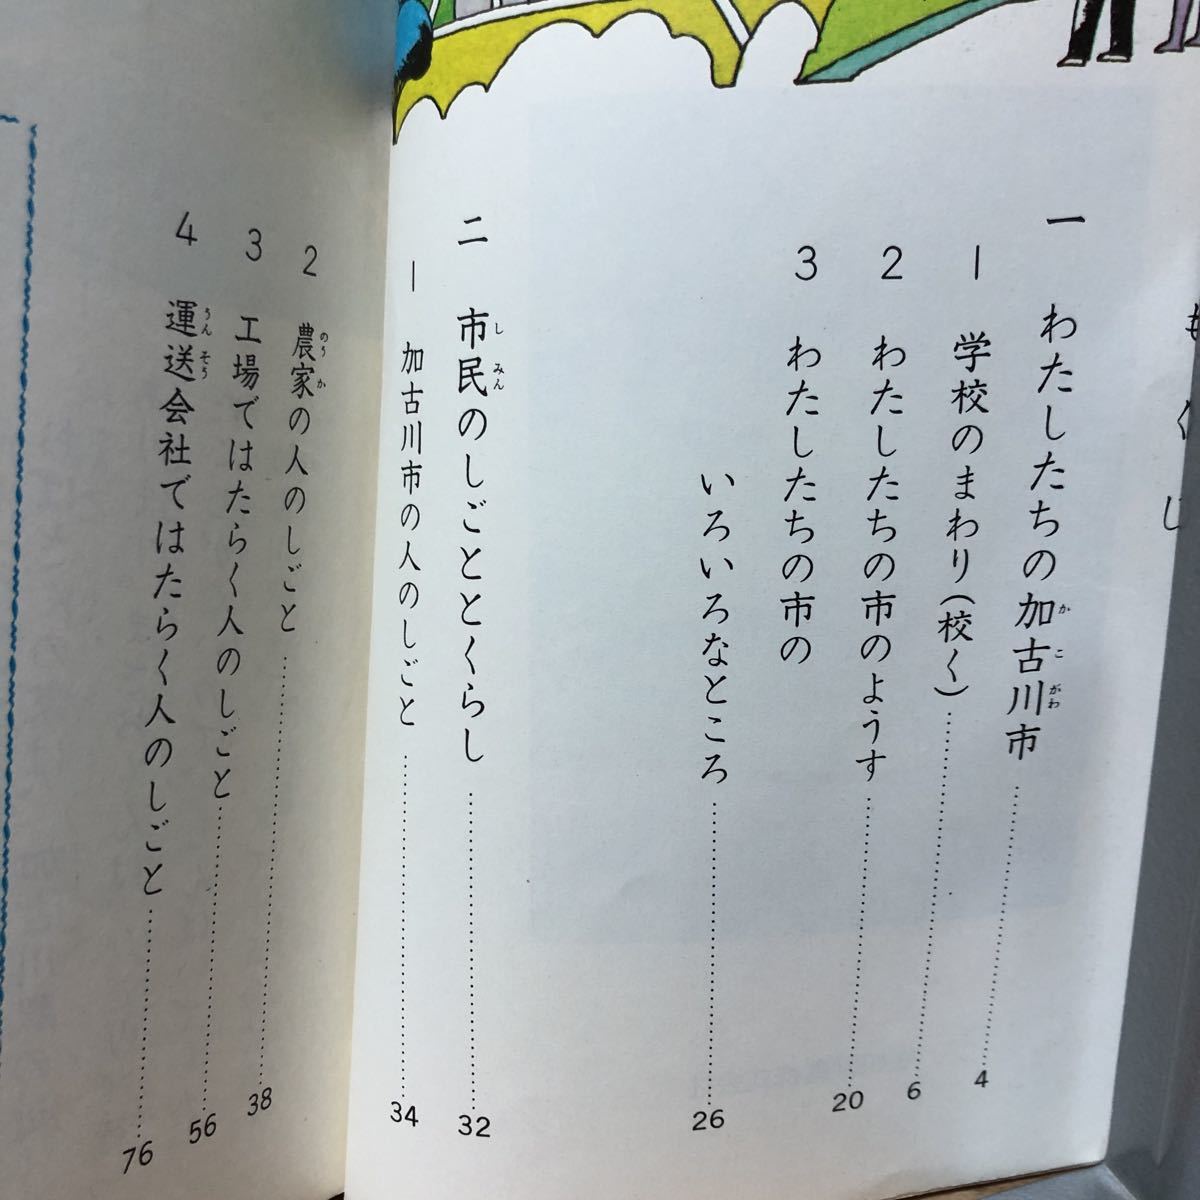 もくじ
一 わたしたちの加古川市 4
かこがわ
1 学校のまわり(校く) 6
2 わたしたちの市のようす 20
3 わたしたちの市の
いろいろなところ 26
二 市民のしごととくらし 32
しみん
1 加古川市の人のしごと 34
2 農家の人のしごと 38
のうか
3 工場ではたらく人のしごと 56
4 運送会社ではたらく人のしごと 76
うんそう